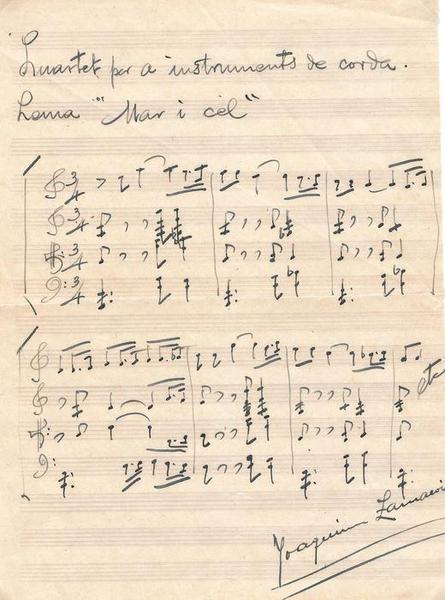 Quartet per a instruments de corda.
Lema "Mar i cel"
3/4
3/4
3/4
3/4
etc
Joaquim Zamacois